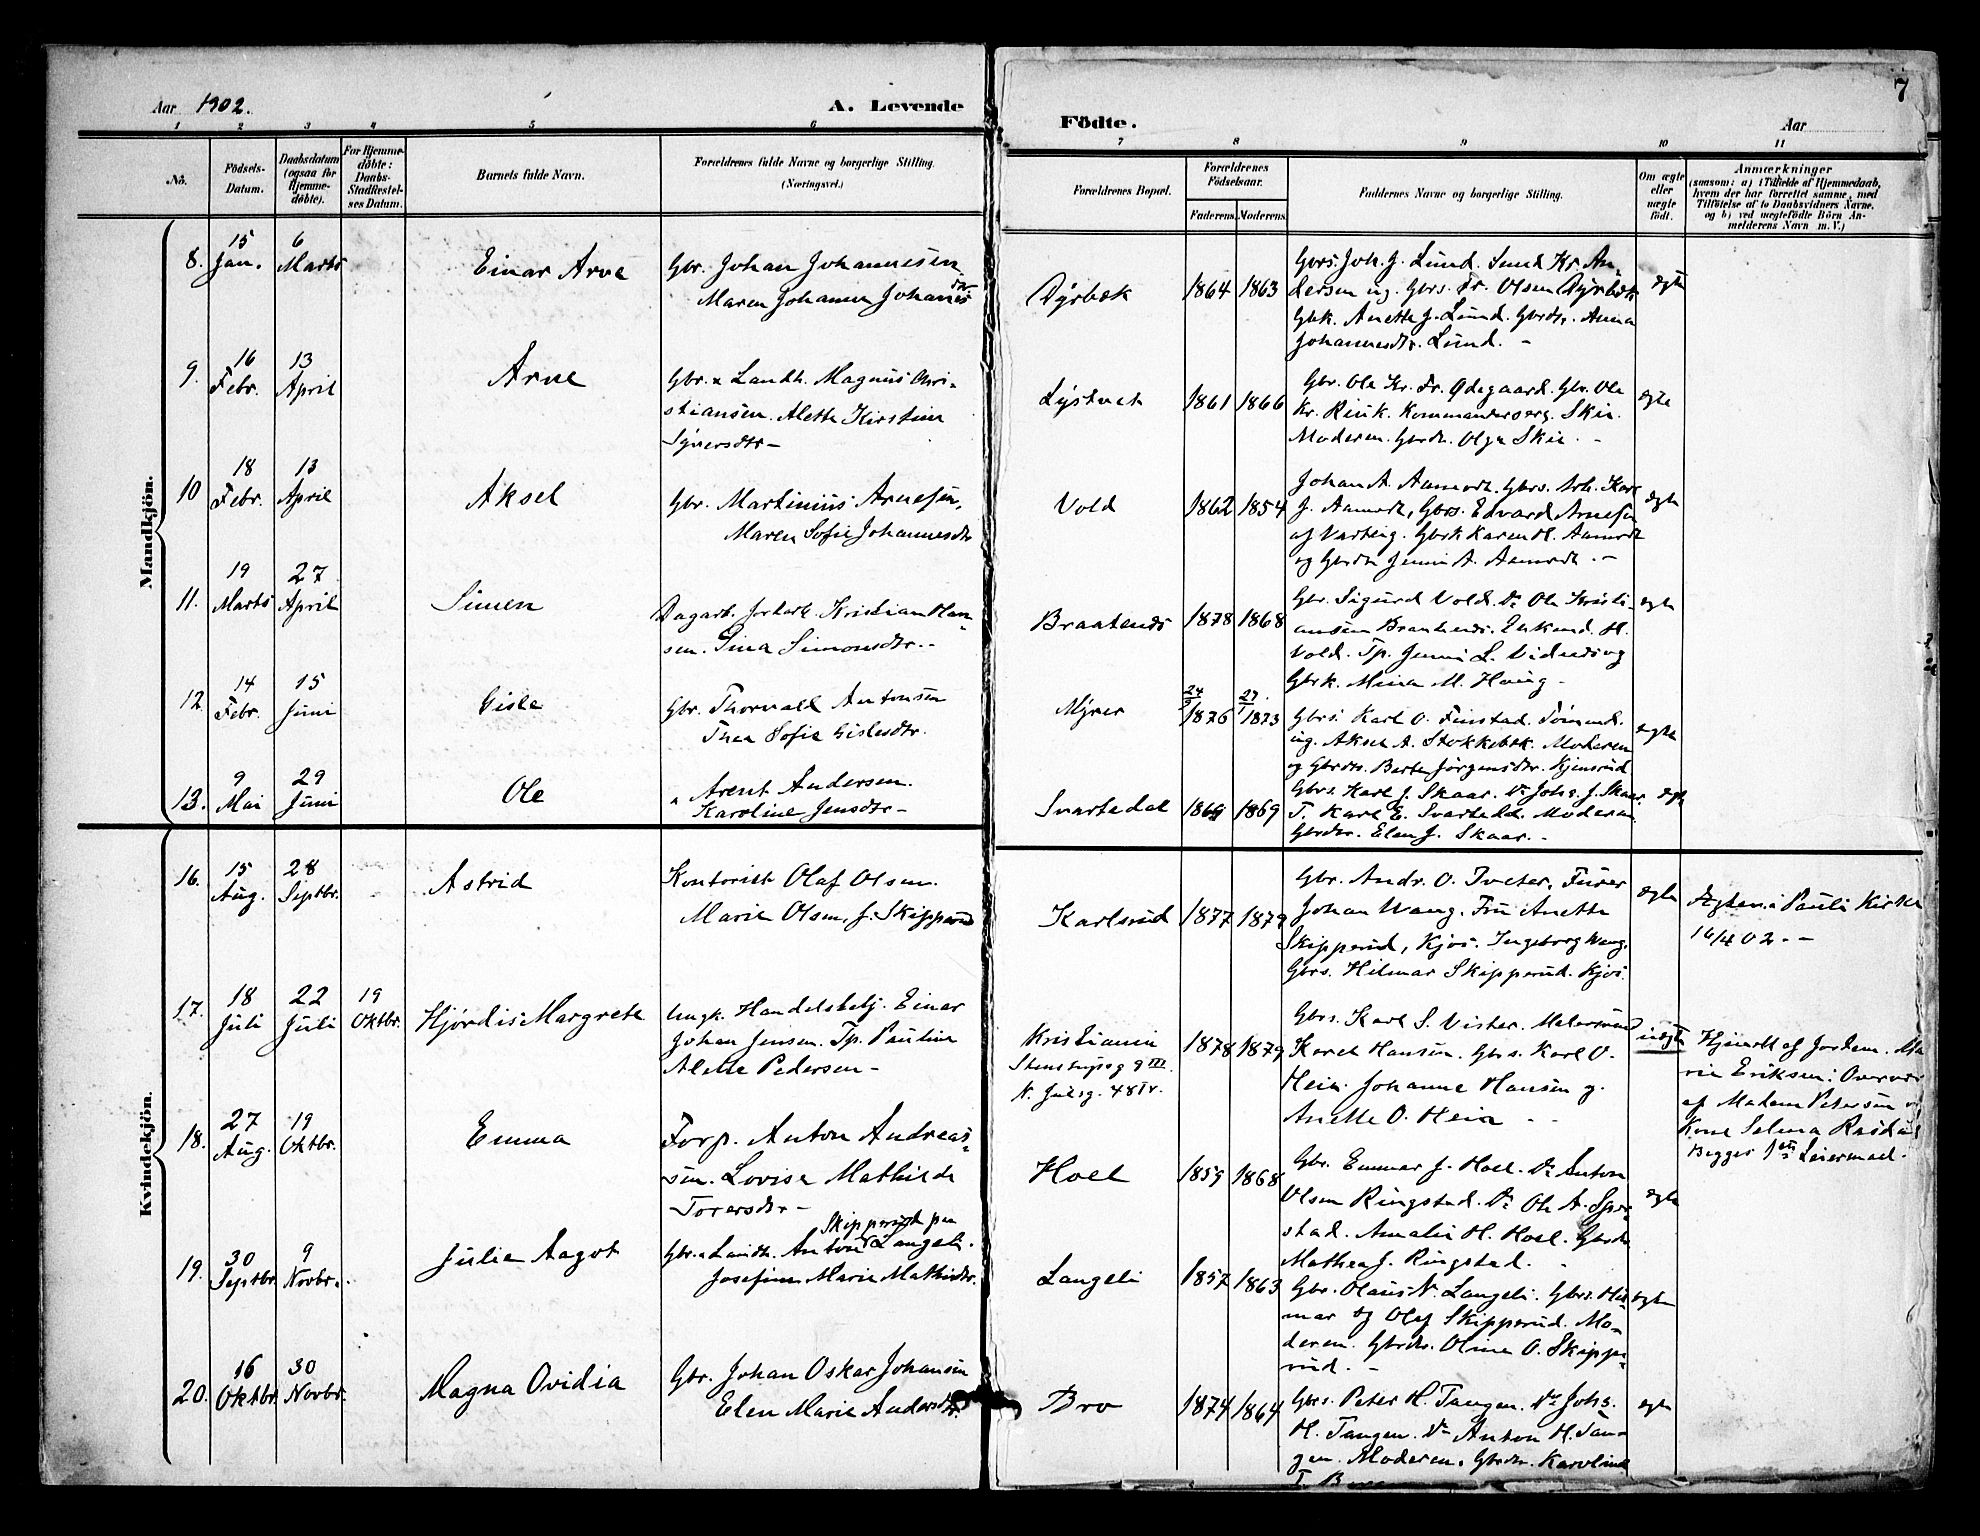 Aar 1902.
A. Levende
Födte.
Aar
7
1 2 3 4 5 6 7 8 9 10 11
Nō.
Födsels-
Datum.
Daabsdatum
(ogsaa for
Hjemme-
döbte).
For Hjemme-
döbte:
Daabs-
Stadfestel-
ses Datum.
Barnets fulde Navn.
Forældrenes fulde Navne og borgerlige Stilling.
(Næringsvei.)
Forældrenes Bopæl.
Forældrenes
Födselsaar.
Faderens. Moderens.
Faddernes Navne og borgerlige Stilling.
Om ægte
eller
uægte
födt.
Anmærkninger
(saasom: a) i Tilfælde af Hjemmedaab,
hvem der har forrettet samme, med
Tilföielse af to Daabsvidners Navne,
og b) ved uægtefödte Börn An-
melderens Navn m. V.)
Mandkjön.
8. 15 Jan. 6 Marts
Einar Arve
Gbr. Johan Johannesen
Maren Johanne Johansdtr
Dyrbæk
1864 1863
Gbrs. Joh. J. Lund. Smed Kr. An-
dersen ug. Gbrs. Fr. Olsen Dyrbæk
Gbk. Anette J. Lund. Gbrdtr. Anna
Johannesdtr. Lund. -
ægte
9. 16 Febr. 13 April
Arne
Gbr. & Landh. Magnus Chri-
stiansen. Alette Kirstine
Syversdtr-
Lystvet
1861 1866
Gbr. Ole Kr. Fr. Ødegaard. Gbr. Ole
Kr. Rink. Kommanderserg. Skie.
Moderen. Gbrdtr. Olga Skie. -
ægte
10 18 Febr. 13 April
Aksel
Gbr. Martinius Arnesen,
Maren Sofie Johannesdtr
Vold
1862 1854
Johan A. Aamodt. Gbrs. Arb. Karl
J. Aamodt, Gbrs. Edvard Arnesen
af Varteig. Gbrk Karen H. Aamodt
og Gbrdtr Jenni A. Aamodt. -
ægte
11. 19 Marts 27 April
Simen
Dagarb. Kristian Han-
sen. Gina Simonsdtr. -
Braatends
1878 1868
Gbr. Sigurd Vold. Do Ole Kristi-
ansen Braatends. Enkemd. H.
Vold. Tp. Jenni L. og
Gbrk. Mina M. -
ægte
12 14 Febr. 15 Juni
Gisle
Gbr. Thorvald Antonsen
Thea Sofie Gislesdtr.
Myrer
24 1876 27 1873
Gbrs. Karl O. Finstad. Tömmd.
ug. Aksel A. Stokkebæk. Moderen
og Gbrdtr. Berte Jörgensdtr. Kjensrud
ægte
13. 9 Mai 29 Juni
Ole
" Arent Andersen.
Karoline Jensdtr-
Svartedal
1869 1869
Gbrs. Karl J. Skaar. Do Johs. J. Skaar.
T. Karl E. Svartedal. Moderen.
Gbrdtr. Elen J. Skaar. -
ægte
Kvindekjön.
16. 15 Aug. 28 Septbr.
Astrid
Kontorist Olaf Olsen.
Marie Olsen f. Skipperud
Karlsrud
1877 1879
Gbr. Andr. O. Tveter. Furer
Johan Wang. Fru Anette
Skipperud, Kjos. Ingeborg Wang.
Gbrs. Hilmar Skipperud. Kjos.
ægte
Ægtev. i Pauli Kirke
16/4 02. -
17. 18 Juli 22 Juli 19 Oktbr.
Hjördis Margrete
Ungk. Handelsbetj. Einar
Johan Jensen. Tp. Pauline
Alette Pedersen -
Kristiania
Stenstupsg 9 III.
N. Julsg. 48 IV.
1878 1879
Gbrs. Karl S. Vister. Malersvend
Karel Hansen. Gbrs. Karl O.
Heia. Johanne Hansen og.
Anette O. Heia - -
uægte
Hjemdt af Jordem. Ma-
rie Eriksen: Overvær
af Madam Petersen og
Kone Selma
Begges 1ste Leiermaal.
18. 27 Aug. 19 Oktbr.
Emma
Forp. Anton Andreas-
sen. Lovise Mathilde
Toversdtr -
Hoel
1859 1868
Gbr. Emmar J. Hoel. Do Anton
Olsen Ringstad. Do Ole A. Spor-
stad. Amalie H. Hoel. Gbrdtr
Mathea J. Ringstad.
ægte
19. 30 Septbr. 9 Novbr.
Julie Aagot
Gbr. & Landh. Anton Skipperud paa Langeli.
Josefine Marie Mathisdtr.
Langeli
1857 1863
Gbr. Olaus N. Langeli. Gbrs. Hil-
mar og Olaf Skipperud. Mo-
deren. Gbrdtr. Oline O. Skippe-
rud. -
ægte
20. 16 Oktbr. 30 Novbr.
Magna Ovidia
Gbr. Johan Oskar Johansen
Elen Marie Andersdtr.
Bro
1874 1864
Gbrs. Peter H. Tangen. Do Johs.
H. Tangen. Do Anton H. Tan-
gen. Moderen. Gbrdtr. Karoline
T.
ægte